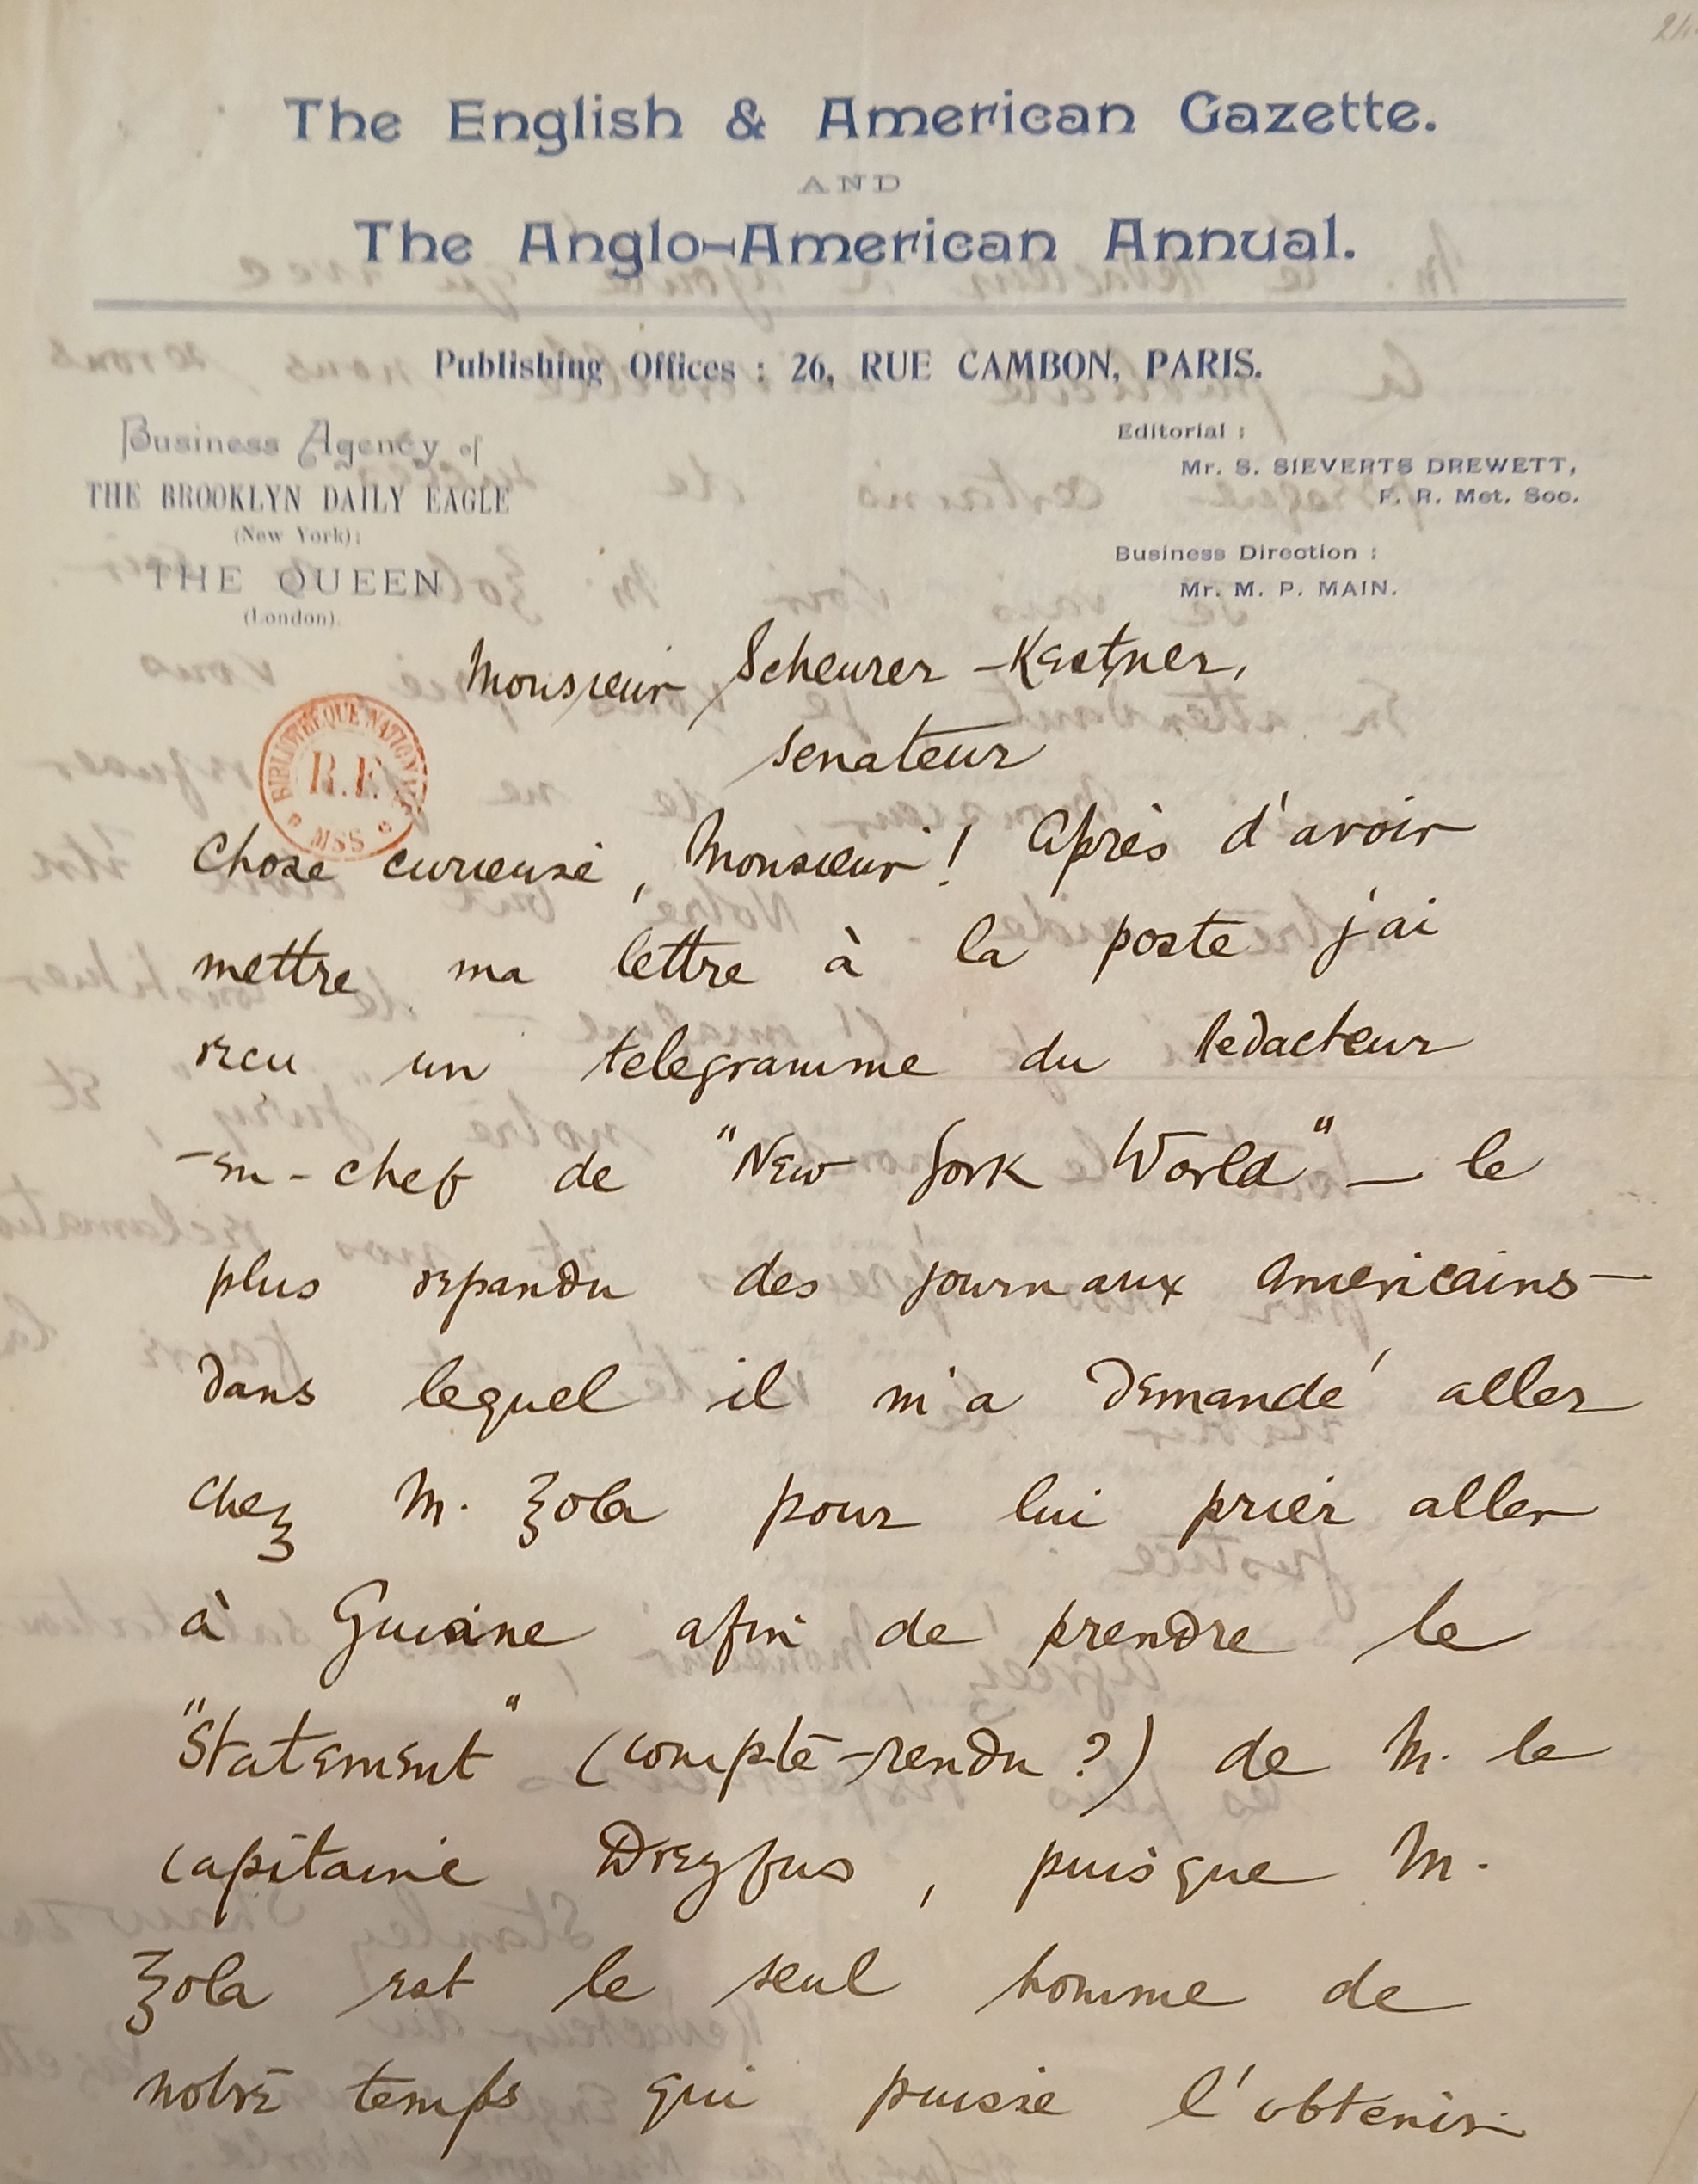 The English & American Gazette.
AND
The Anglo-American Annual.
Publishing Offices : 26, RUE CAMBON, PARIS.
Business Agency of
THE BROOKLYN DAILY EAGLE
(New York);
THE QUEEN
(London).
Editorial :
Mr. S. SIEVERTS DREWETT,
F. R. Met. Soc.
Business Direction :
Mr. M. P. MAIN.
Monsieur Scheurer-Kestner,
senateur
BIBLIOTHEQUE NATIONALE
R.F.
MSS
Chose curieuse, Monsieur! Après d'avoir
mettre ma lettre à la poste j'ai
recu un telegramme du redacteur
-en-chef de "New York World" — le
plus repandu des journaux americains—
dans lequel il m'a demandé aller
chez M. Zola pour lui prier aller
à Guiane afin de prendre le
"Statement" (compte-rendu?) de M. le
capitaine Dreyfus, puisque M.
Zola est le seul homme de
notre temps qui puisse l'obtenir